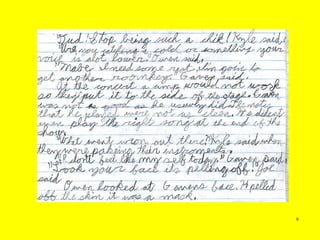 "Jud! Stop being such a chik! Kyle said.
"Are you catching a cold or something your
voice is alot lower." Owen said.
"Maybe I need some rest. I'm goin to
get another room key." Gaven said.
At the concert a amp would not work
so they put it to the side of the stage. Gaven
was not as good as he usually did. The notes
that he played were not as clean. He didn't
even play the right song at the end of the
show.
"What went wron out there." Kyle said when
they were packing their instruments.
"I don't feel like my self today." Gaven said.
"Look your face is pelling off." Joe
said
Owen looked at Gavens face. H pelled
off the skin it was a mask.